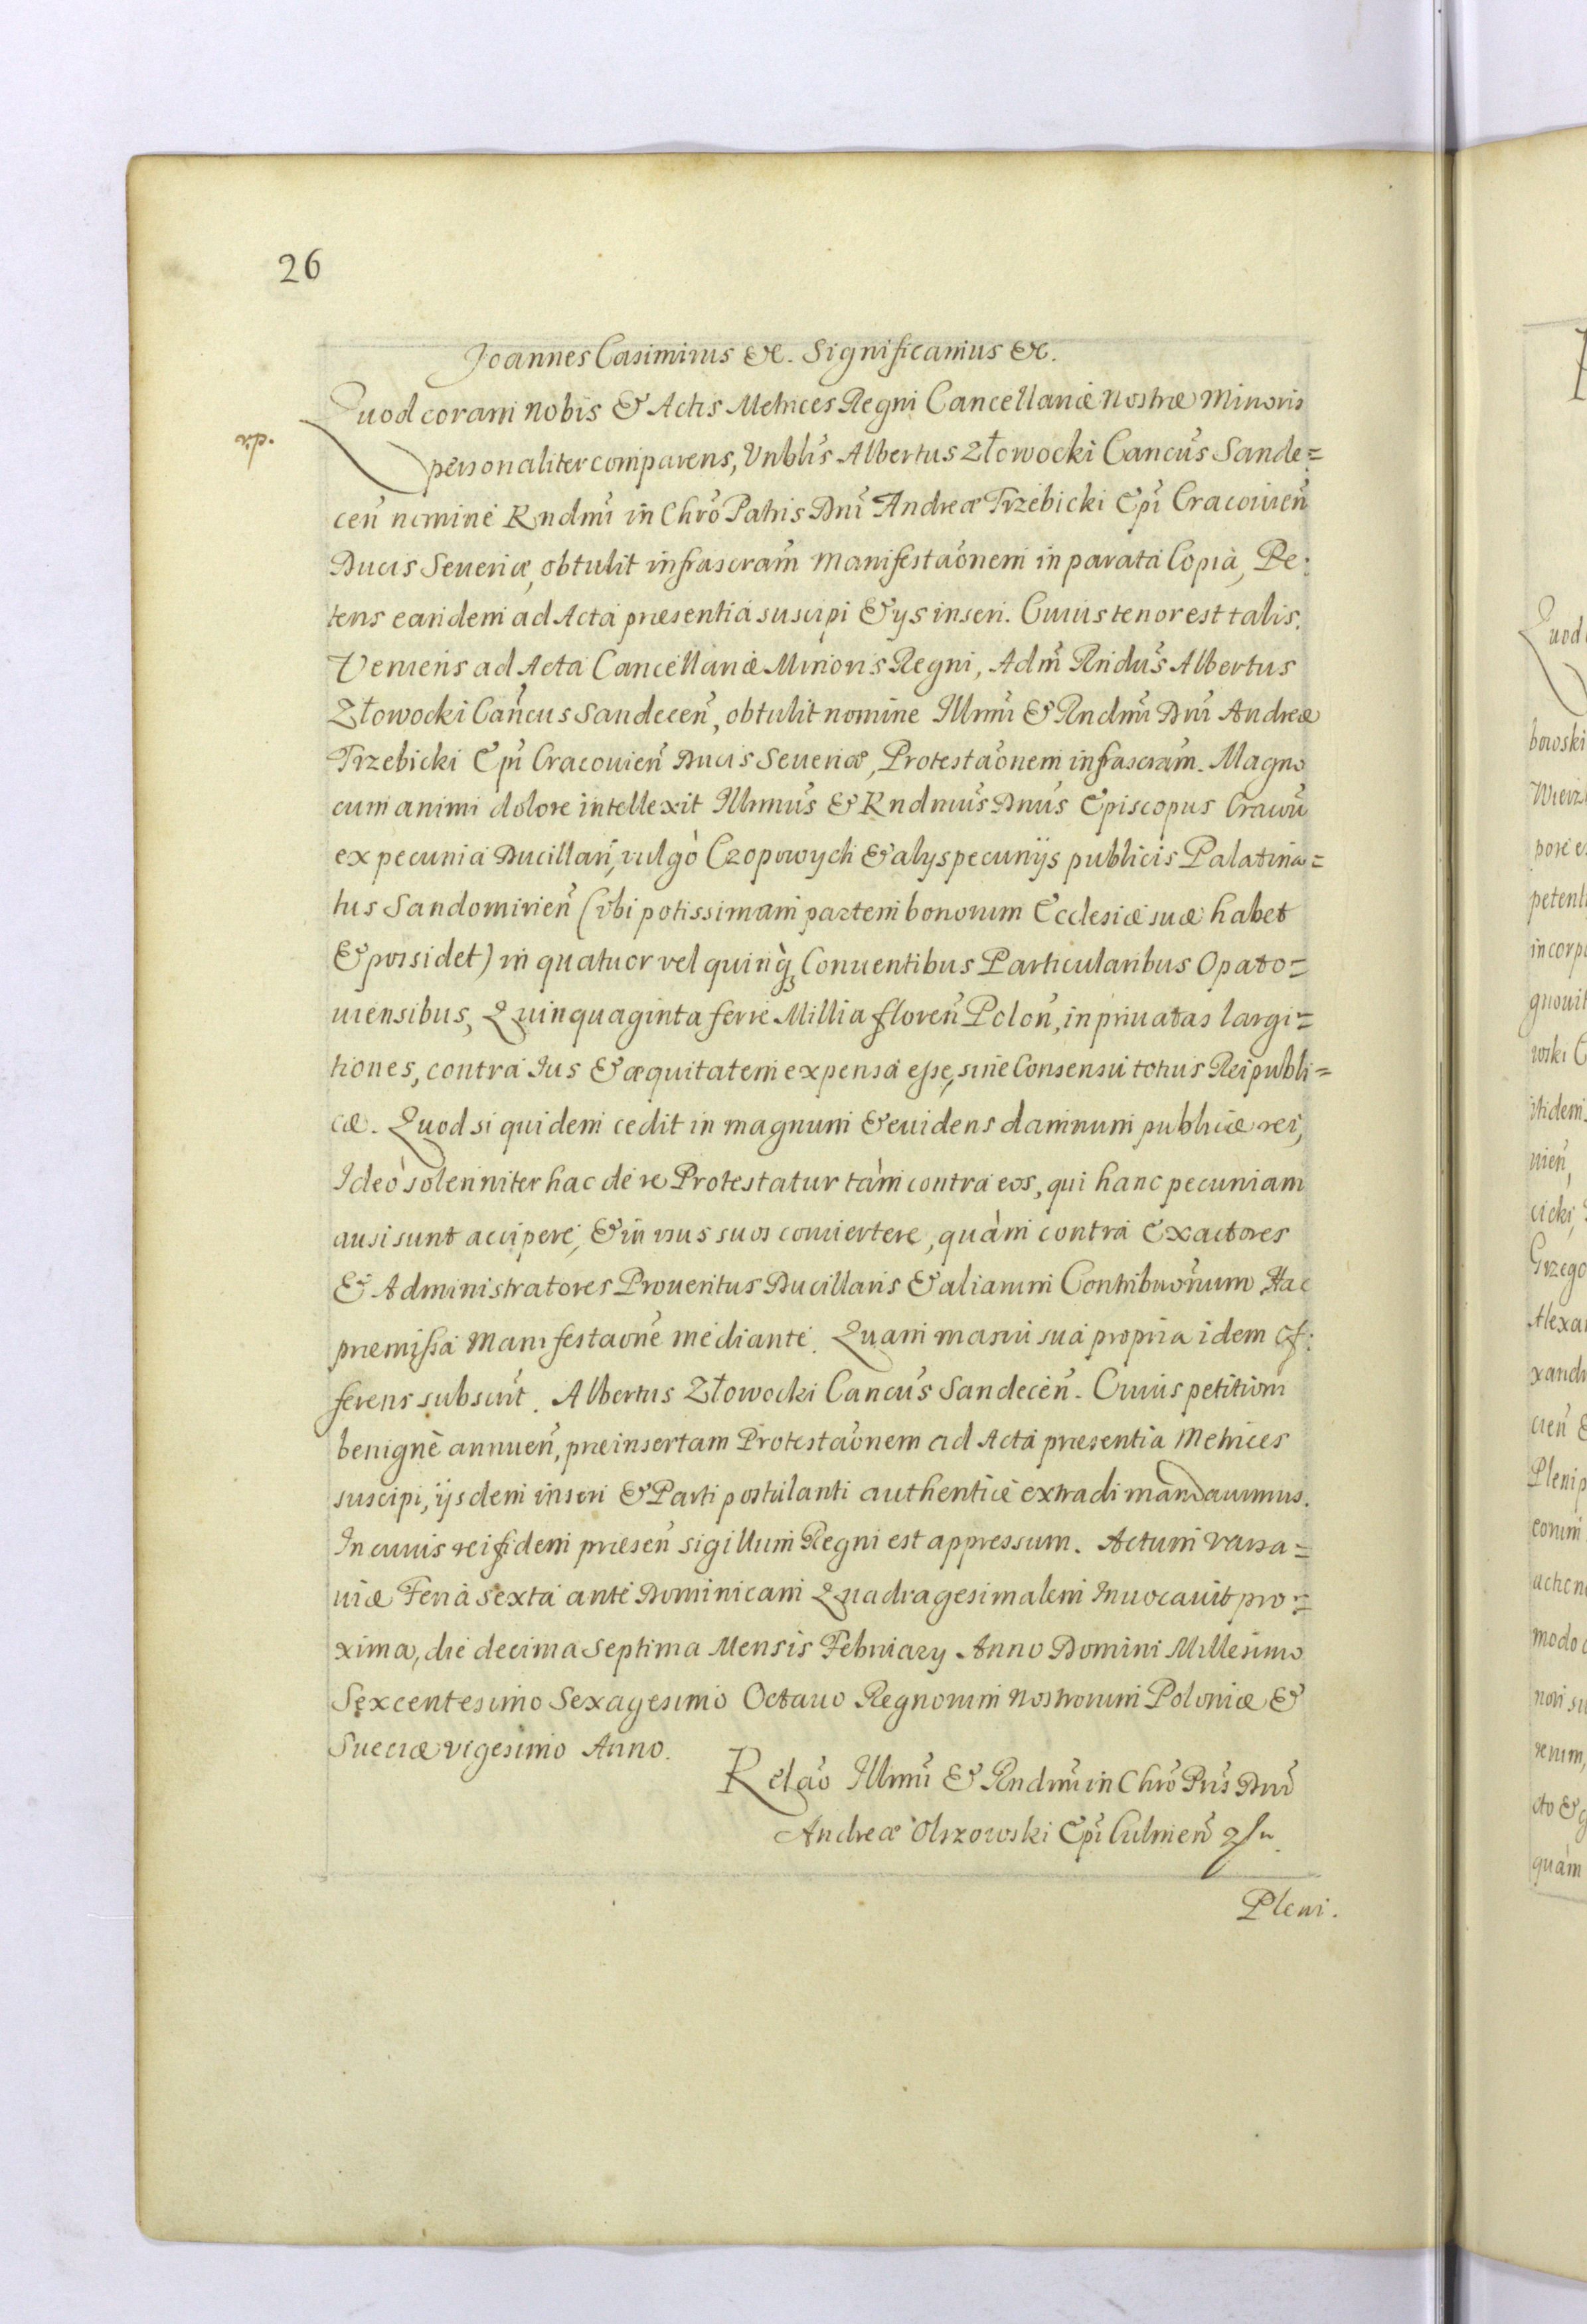 26
Joannes Casimirus &c. Significamus &c.
Quod coram nobis & Actis Metrices Regni Cancellariæ Nostræ Minoris
rp.
personaliter comparens, Vnblis Albertus Złowocki Cancus Sande=
cen̄ nomine Rndmi in Chro Patris Dni Andreæ Trzebicki Epi Cracouien̄
Ducis Seueriæ, obtulit infrascram Manifestaonem in parata Copia, Pe:
tens eandem ad Acta præsentia suscipi & ijs inseri. Cuius tenor est talis.
Veniens ad Acta Cancellariæ Minoris Regni, Adm Rndus Albertus
Złowocki Cancus Sandecen̄, obtulit nomine Illmi & Rndmi Dni Andreæ
Trzebicki Epi Cracouien̄ Ducis Seueriæ, Protestaonem infrascram. Magno
cum animi dolore intellexit Illmus & Rndmus Dnus Episcopus Cracou
ex pecunia Ducillari, vulgò Czopowych & alys pecunijs publicis Palatina=
tus Sandomirien̄ (vbi potissimam partem bonorum Ecclesiæ suæ habet
& possidet) in quatuor vel quinq Conuentibus Particularibus Opato=
uiensibus, Quinquaginta ferre Millia floren̄ Polon̄, in priuatas largi=
tiones, contra Ius & æquitatem expensa esse, sine Consensu totius Reipubli=
cæ. Quod siquidem cedit in magnum & euidens damnum publicæ rei,
Ideò solenniter hac de re Protestatur tàm contra eos, qui hanc pecuniam
ausi sunt accipere, & in vsus suos conuertere, quàm contra Exactores
& Administratores Prouentus Ducillaris & aliarum Contribuonum Hac
præmissa Manifestaone mediante. Quam manu sua propria idem Of:
ferens subscrit. Albertus Złowocki Cancus Sandecen̄. Cuius petitioni
benignè annuen̄, præinsertam Protestaonem ad Acta præsentia Metrices
suscipi, ijsdem inseri & Parti postulanti authenticè extradi mandauimus.
In cuius rei fidem præsen̄ sigillum Regni est appressum. Actum Varsa=
uiæ Feria sexta ante Dominicam Quadragesimalem Inuocauit pro=
xima, die decima septima Mensis Februarij Anno Domini Millesimo
Sexcentesimo Sexagesimo Octauo Regnorum Nostrorum Poloniæ &
Sueciæ vigesimo Anno.
Relao Illmi & Rndmi in Chro Pris Dni
Andreæ Olszowski Epi Culmen̄
Pleni.